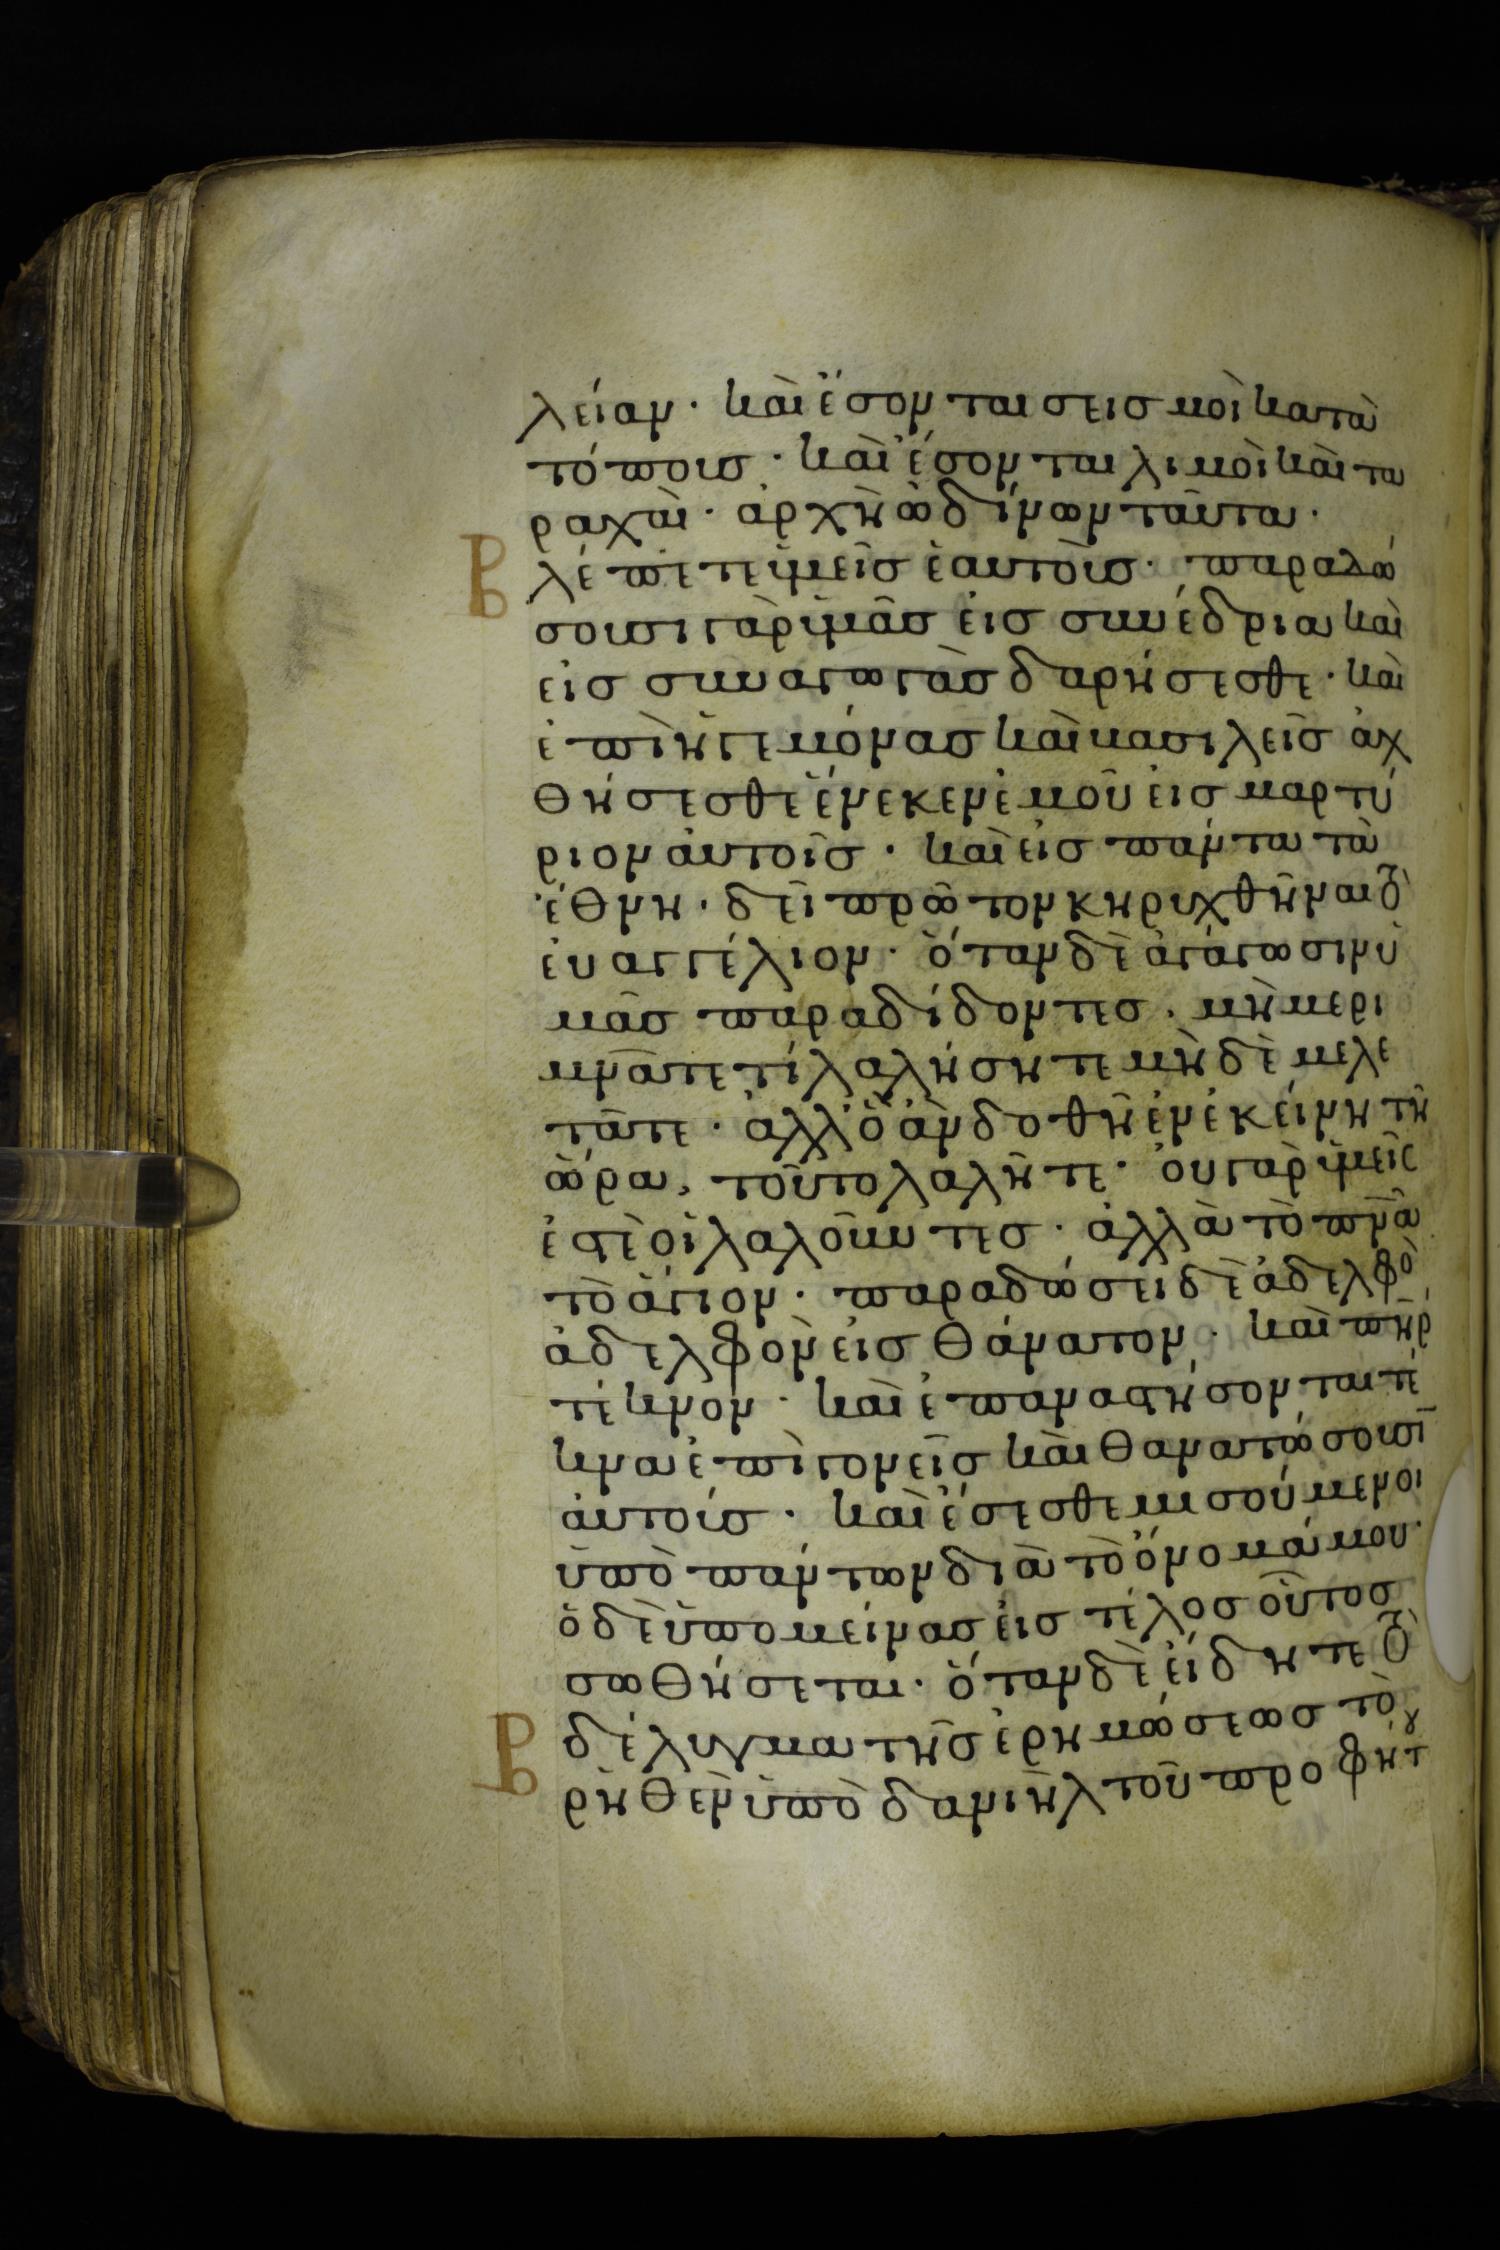 λείαν · καὶ ἔσονται σεισμοὶ κατὰ
τόπους · καὶ ἔσονται λιμοὶ καὶ τα
ραχαὶ · ἀρχὴ ὠδίνων ταῦτα ·
Βλέπετε ὑμεῖς ἑαυτοὺς · παραδώ
σουσι γὰρ ὑμᾶς εἰς συνέδρια καὶ
εἰς συναγωγὰς δαρήσεσθε · καὶ
ἐπὶ ἡγεμόνας καὶ βασιλεῖς ἀχ
θήσεσθε ἕνεκεν ἐμοῦ εἰς μαρτύ
ριον αὐτοῖς · καὶ εἰς πάντα τὰ
ἔθνη · δεῖ πρῶτον κηρυχθῆναι τὸ
εὐαγγέλιον · ὅταν δὲ ἀγάγωσιν ὑ
μᾶς παραδίδοντες · μὴ μερι
μνᾶτε τί λαλήσητε μηδὲ μελε
τᾶτε · ἀλλ' ὃ ἂν δοθῆ ἐν ἐκείνη τῆ
ὥρα, τοῦτο λαλῆτε · οὐ γὰρ ὑμεῖς
ἐστὲ οἱ λαλοῦντες · ἀλλὰ τὸ πνᾶ
τὸ ἅγιον · παραδώσει δὲ ἀδελφὸ
ἀδελφὸν εἰς θάνατον · καὶ πηρ
τέκνον · καὶ ἐπαναστήσονται τέ
κνα ἐπὶ γονεῖς καὶ θανατώσουσι
αὐτούς · καὶ ἔσεσθε μισούμενοι
ὑπὸ πάντων διὰ τὸ ὄνομά μου ·
ὁ δὲ ὑπομείνας εἰς τέλος οὗτος
σωθήσεται · ὅταν δὲ εἴδητε τὸ
Βδέλυγμα τῆς ἐρημώσεως τὸ
ῥηθὲν ὑπὸ δανιὴλ τοῦ προφήτ